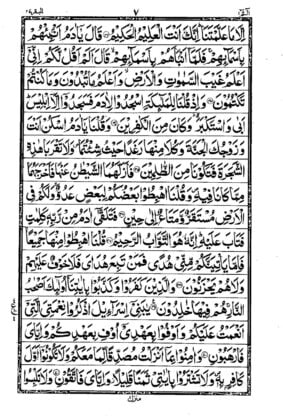 البقرة ٢
٧
الٓمّ ١
اِلَّا مَا عَلَّمْتَنَا اِنَّكَ اَنْتَ الْعَلِيْمُ الْحَكِيْمُ قَالَ يٰۤاٰدَمُ اَنْۢبِئْهُمْ
بِاَسْمَآئِهِمْ فَلَمَّاۤ اَنْۢبَاَهُمْ بِاَسْمَآئِهِمْ قَالَ اَلَمْ اَقُلْ لَّكُمْ اِنِّیْۤ
اَعْلَمُ غَيْبَ السَّمٰوٰتِ وَالْاَرْضِ وَاَعْلَمُ مَا تُبْدُوْنَ وَمَا كُنْتُمْ
تَكْتُمُوْنَ وَاِذْ قُلْنَا لِلْمَلٰٓئِكَةِ اسْجُدُوْا لِاٰدَمَ فَسَجَدُوْۤا اِلَّاۤ اِبْلِيْسَ
اَبٰى وَاسْتَكْبَرَ وَكَانَ مِنَ الْكٰفِرِيْنَ وَقُلْنَا يٰۤاٰدَمُ اسْكُنْ اَنْتَ
وَزَوْجُكَ الْجَنَّةَ وَكُلَا مِنْهَا رَغَدًا حَيْثُ شِئْتُمَا وَلَا تَقْرَبَا هٰذِهِ
الشَّجَرَةَ فَتَكُوْنَا مِنَ الظّٰلِمِيْنَ فَاَزَلَّهُمَا الشَّيْطٰنُ عَنْهَا فَاَخْرَجَهُمَا
مِمَّا كَانَا فِيْهِ وَقُلْنَا اهْبِطُوْا بَعْضُكُمْ لِبَعْضٍ عَدُوٌّ وَلَكُمْ فِی
الْاَرْضِ مُسْتَقَرٌّ وَّمَتَاعٌ اِلٰى حِيْنٍ فَتَلَقّٰۤى اٰدَمُ مِنْ رَّبِّهٖ كَلِمٰتٍ
فَتَابَ عَلَيْهِ اِنَّهٗ هُوَ التَّوَّابُ الرَّحِيْمُ قُلْنَا اهْبِطُوْا مِنْهَا جَمِيْعًا
فَاِمَّا يَاْتِيَنَّكُمْ مِّنِّیْ هُدًى فَمَنْ تَبِعَ هُدَایَ فَلَا خَوْفٌ عَلَيْهِمْ
وَلَا هُمْ يَحْزَنُوْنَ وَالَّذِيْنَ كَفَرُوْا وَكَذَّبُوْا بِاٰيٰتِنَاۤ اُولٰٓئِكَ اَصْحٰبُ
النَّارِ هُمْ فِيْهَا خٰلِدُوْنَ يٰبَنِیْۤ اِسْرَآءِيْلَ اذْكُرُوْا نِعْمَتِیَ الَّتِیْۤ
اَنْعَمْتُ عَلَيْكُمْ وَاَوْفُوْا بِعَهْدِیْۤ اُوْفِ بِعَهْدِكُمْ وَاِيَّایَ
فَارْهَبُوْنِ وَاٰمِنُوْا بِمَاۤ اَنْزَلْتُ مُصَدِّقًا لِّمَا مَعَكُمْ وَلَا تَكُوْنُوْۤا اَوَّلَ
كَافِرٍۢ بِهٖ وَلَا تَشْتَرُوْا بِاٰيٰتِیْ ثَمَنًا قَلِيْلًا وَّاِيَّایَ فَاتَّقُوْنِ وَلَا تَلْبِسُوا
منزل